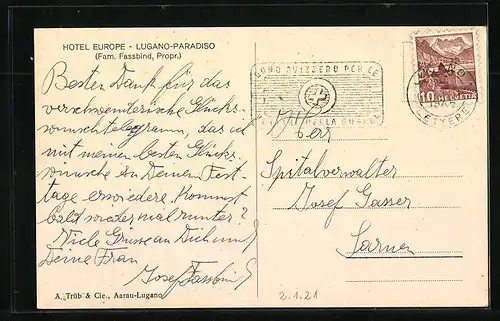 HOTEL EUROPE - LUGANO-PARADISO
(Fam. Fassbind, Propr.)
Besten Dank für das
verschwenderische Glücks-
wunschtelegramm, das ich
mit meinen besten Glücks-
wünsche an Deinem Fest-
tage erwiedere. Kommst
bald wieder mal runter?
Viele Grüsse an Dich und
Deine Frau
Josef Fassbind
A. Trüb & Cie., Aarau-Lugano
DONO SVIZZERO PER LE
VITTIME DELLA GUERRA
10 HELVETIA
LETTERE
Herr
Spitalverwalter
Josef Gasser
Sarnen
2.1.21